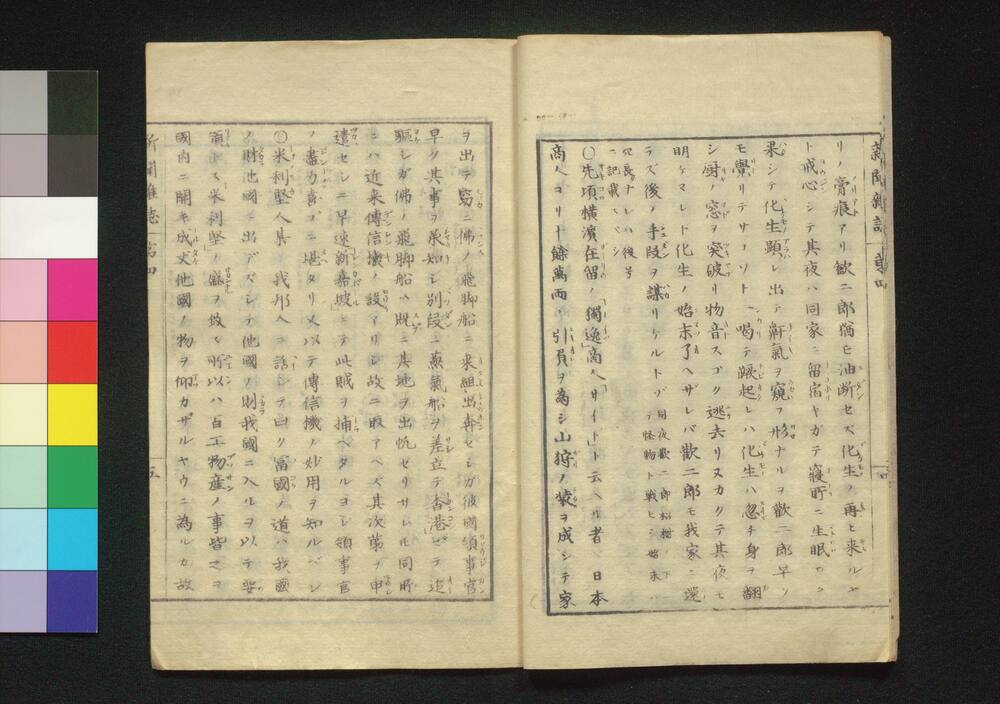 新聞雑誌 第四
リノ膏痕アリ歓二郎猶モ油断セズ化生ノ再ヒ来ルヤ
ト戒心シテ其夜ハ同家ニ留宿ヤガテ寝所ニ生眠
果シテ化生顕レ出テ鼾氣ヲ窺フ形ナルヲ歓二郎早ク
モ覺リテサソト一喝テ蹶起レハ化生ハ忽チ身ヲ翻
シ厨ノ窓ヲ突破リ物音スゴク逃去リヌカクテ其夜モ
明ケマレト化生ノ始末了ヘザレバ歓二郎モ我家ニ還
ラズ後ノ手段ヲ謀リケルトゾ
同夜歓二郎
テ怪物ト戦ヒシ始末ハ
冗長ナレハ後号
ニ記載スベシ
〇先頃横濱在留ノ獨逸商人「サイト」ト云ヘル者、日本
商人ヨリ十餘萬両ノ引員ヲ為シ山狩ノ装ヲ成シテ家
ヲ出テ窃ニ佛ノ飛脚船ニ来組出奔セシガ彼國領事官
早ク其事ヲ承知シ別段ニ蒸氣船ヲ差立テ香港ヘ追
駆シガ佛ノ飛脚船ハ既ニ其地ヲ出帆セリサレト同所
ニハ近来傳信機ノ設アリシ故ニ取アヘズ其次第ヲ申
遣セシニ早速「新嘉坡」ニテ此賊ヲ捕ヘタルヨシ領事官
ノ盡力喜ブニ堪タリ又以テ傳信機ノ妙用ヲ知ルベシ
〇米利堅人某ノ我邦人ニ話シテ曰ク富國ノ道ハ我國
ノ財他國ニ出デズシテ他國ノ財我國ニ入ルヲ以テ要
領トス米利堅ノ盛ヲ致ス所以ハ百工物産ノ事皆之ヲ
國内ニ開キ成丈他國ノ物ヲ仰カザルヤウニ為ルカ故
新聞雑誌 第四
五